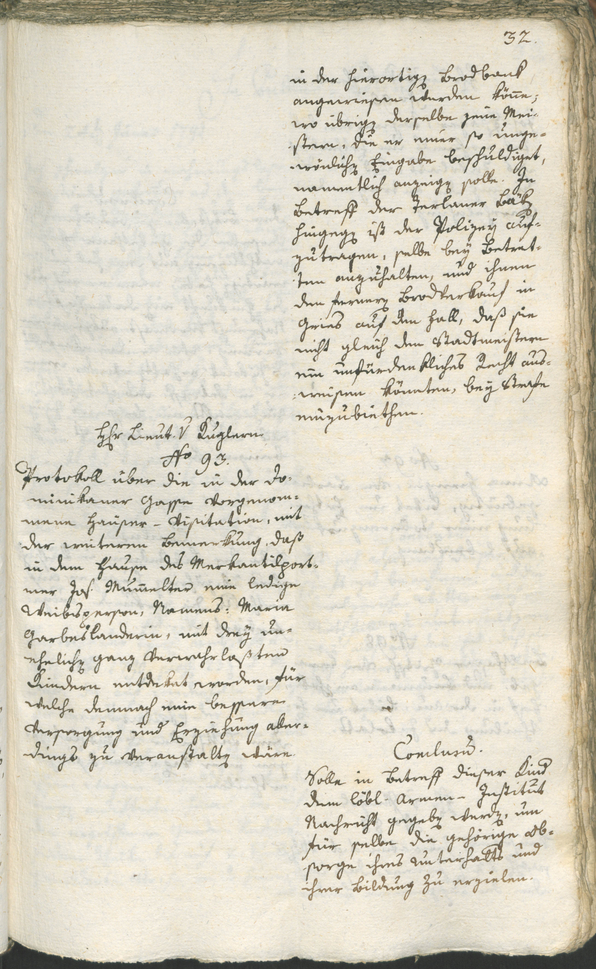 32.
in der hierortigen Brodbank
angewiesen werden könne;
wo übrigens derselbe jene Mei-
stern, die er einer so unge-
wönlichen Eingabe beschuldiget,
namentlich anzeigen solle. In
Betreff der Terlaner Bäken
hingegen ist der Polizey auf-
zutragen, selbe bey Betret-
ten anzuhalten, und ihnen
den fernern Brodverkauf in
Gries auf den Fall, daß sie
nicht gleich den Stadtmeistern
ein unfürdenkliches Recht aus-
weisen könnten, bey Strafe
einzubiethen.
Hr Lieut. v Kuglern
No 93.
Protokoll über die in der Do-
minikaner Gasse vorgenom-
mene Häuser-Visitation, mit
der weiteren Bemerkung, daß
in dem Hause des Merkantilport-
ner Jos. Mumelter eine ledige
Weibsperson, Namens: Maria
Garbeslanderin, mit drey un-
ehelichen ganz verwahrlosten
Kindern entdeket worden, für
welche demnach eine bessere
Versorgung und Erziehung aller-
dings zu veranstalten wäre
Conclusum.
Solle in Betreff dieser Kind.
dem löbl. Armen-Institut
Nachricht gegeben werden, um
für selbe die gehörige Ob-
sorge ihres Unterhalts und
ihrer Bildung zu erzielen.